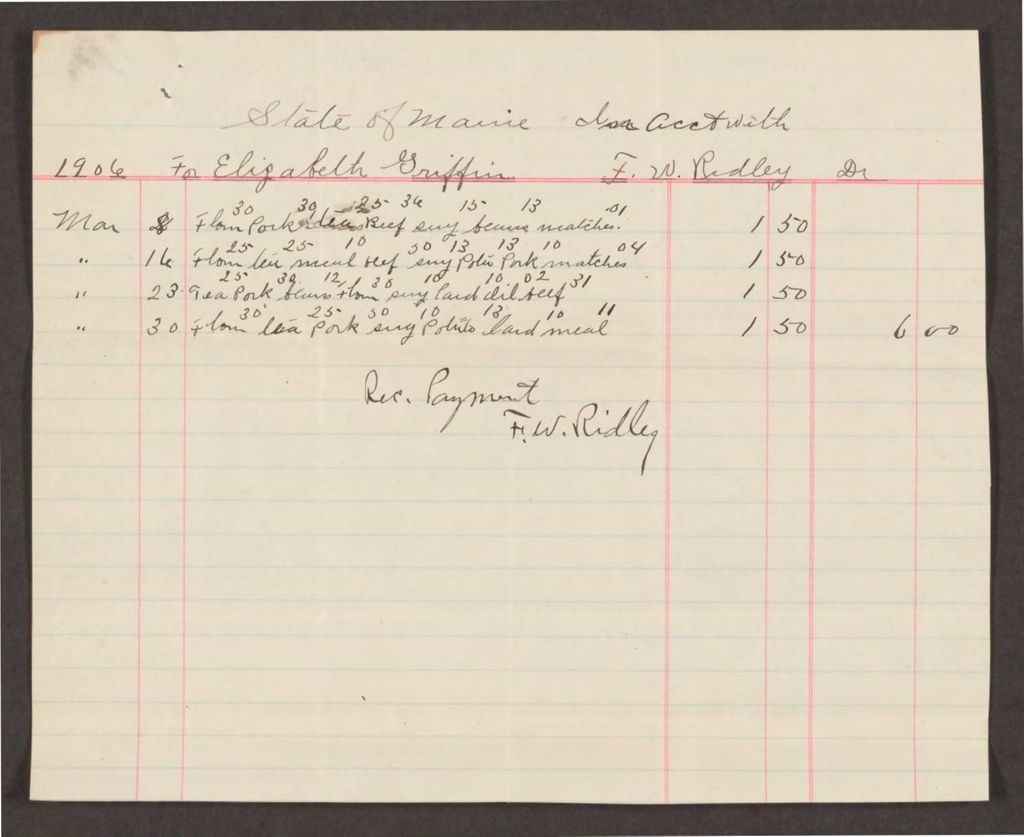 State of Maine In acct with
1906 For Elizabeth Griffin F. W. Ridley Dr
30 30 25 36 15 13 .01
Mar 8 Flour Pork tea Beef sug beans matches. 1 50
25 25 10 30 13 13 10 04
" 16 Flour tea meal beef sug Poto Pork matches 1 50
25 30 12 30 10 10 02 31
" 23 Tea Pork beans Flour sug lard oil beef 1 50
30 25 30 10 13 10 11
" 30 Flour tea Pork sug Potato lard meal 1 50 6 00
Rec. Payment
F. W. Ridley